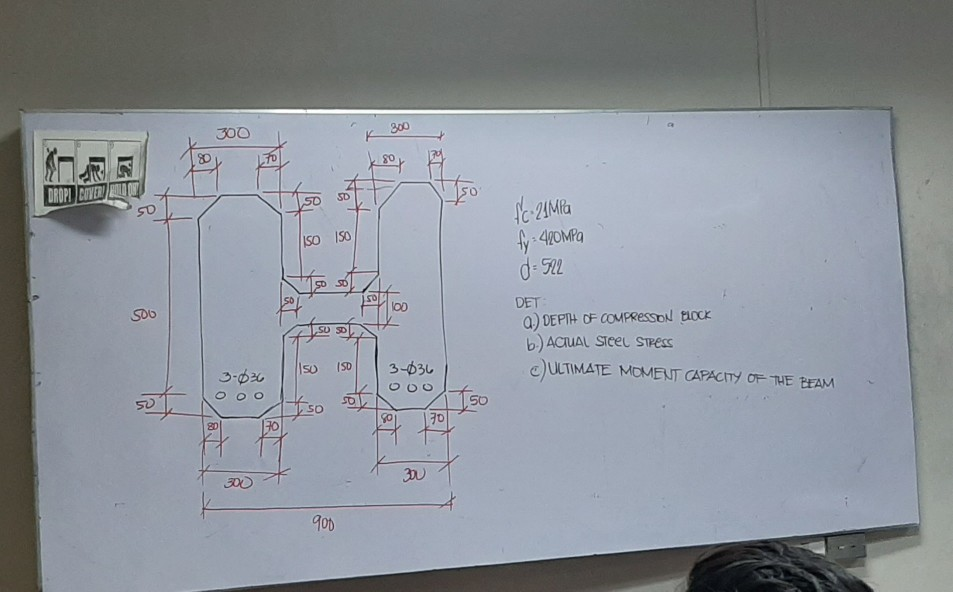 DROP! COVER! HOLD ON!
300
300
80
70
80
70
50
50
50
50
150
150
50
50
50
50
100
500
50
50
150
150
3-Ø36
3-Ø36
50
50
50
50
80
70
80
70
300
300
900
f'c=21MPa
fy=420MPa
d=522
DET:
a.) DEPTH OF COMPRESSION BLOCK
b.) ACTUAL STEEL STRESS
c.) ULTIMATE MOMENT CAPACITY OF THE BEAM